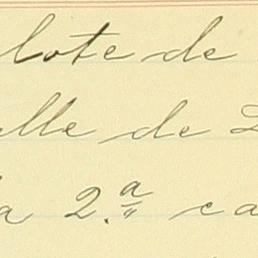 lote de
lle de
a 2.ª ca